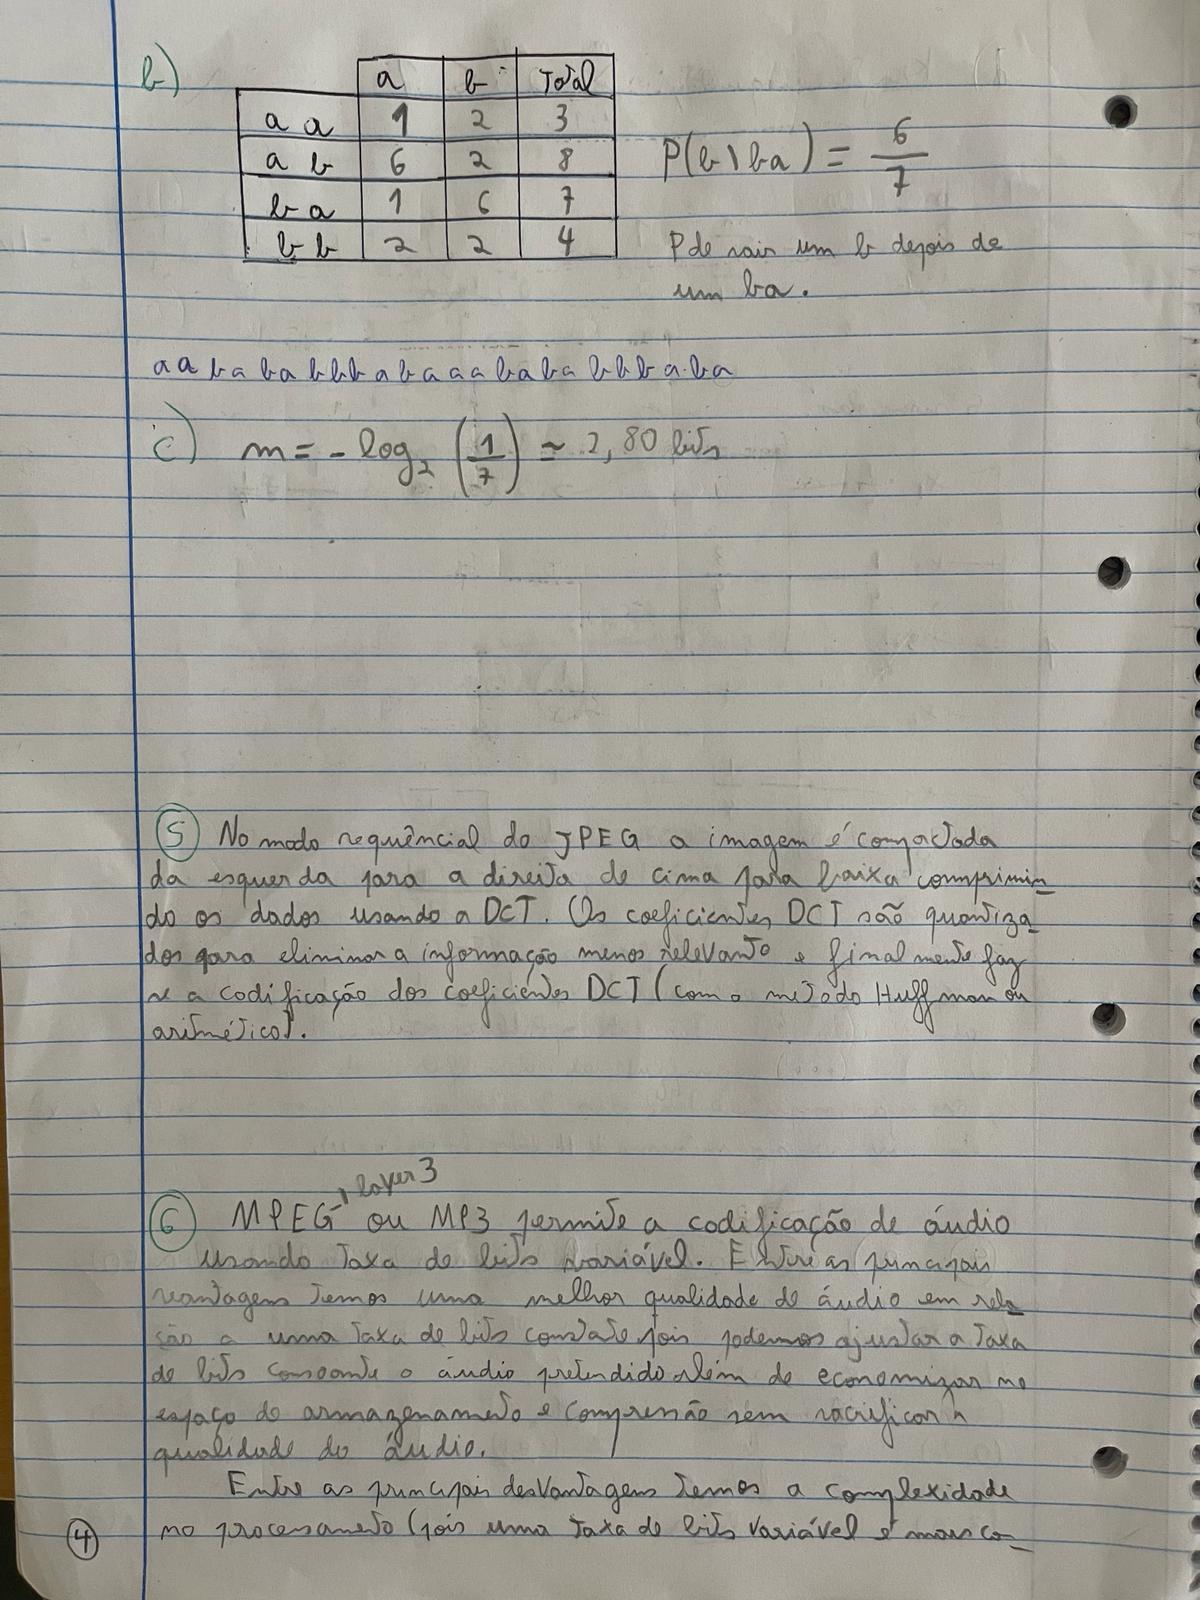 b)
a b Total
a a 1 2 3
a b 6 2 8
b a 1 6 7
b b 2 2 4
P(b\ba) = 6/7
P de sair um b depois de
um ba.
a a b a b a b b b a b a a a b a b a b b b a b a
c) m = - log₂ (1/7) ≃ 2,80 bits
5 No modo sequêncial do JPEG a imagem é compactada
da esquerda para a direita de cima para baixa comprimin_
do os dados usando a DCT. Os coeficientes DCT são quantiza_
dos para eliminar a informação menos relevante e finalmente faz
se a codificação dos coeficientes DCT (com o metodo Huffman ou
aritmético).
6 MPEG-1 layer 3 ou MP3 permite a codificação de áudio
usando taxa de bits variável. Entre as principais
vantagens temos uma melhor qualidade de áudio em rela_
ção a uma taxa de bits constate pois podemos ajustar a taxa
de bits consoante o áudio pretendido além de economizar no
espaço de armazenamento e compressão sem sacrificar a
qualidade do áudio.
Entre as principais desvantagens temos a complexidade
no processamento (pois uma taxa de bits variável é mais co_
4